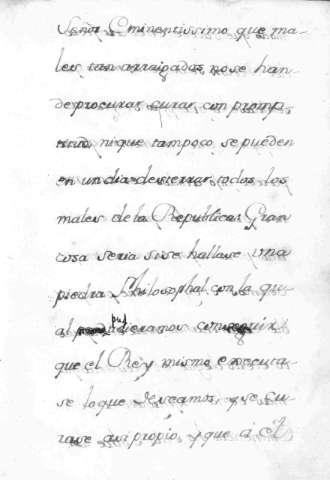 Señor Eminentissimo, que ma-
les tan arraigados, no se han
de procurar curar con promp
titud, ni que tampoco se pueden
en un dia desterrar todos los
males de la Republica: Gran
cosa seria si se hallase una
piedra Philosophal con la qu
al pudieramos conseguir
que el Rey mismo executa-
se lo que deseamos, y se cu
rase asi propio, y que a el